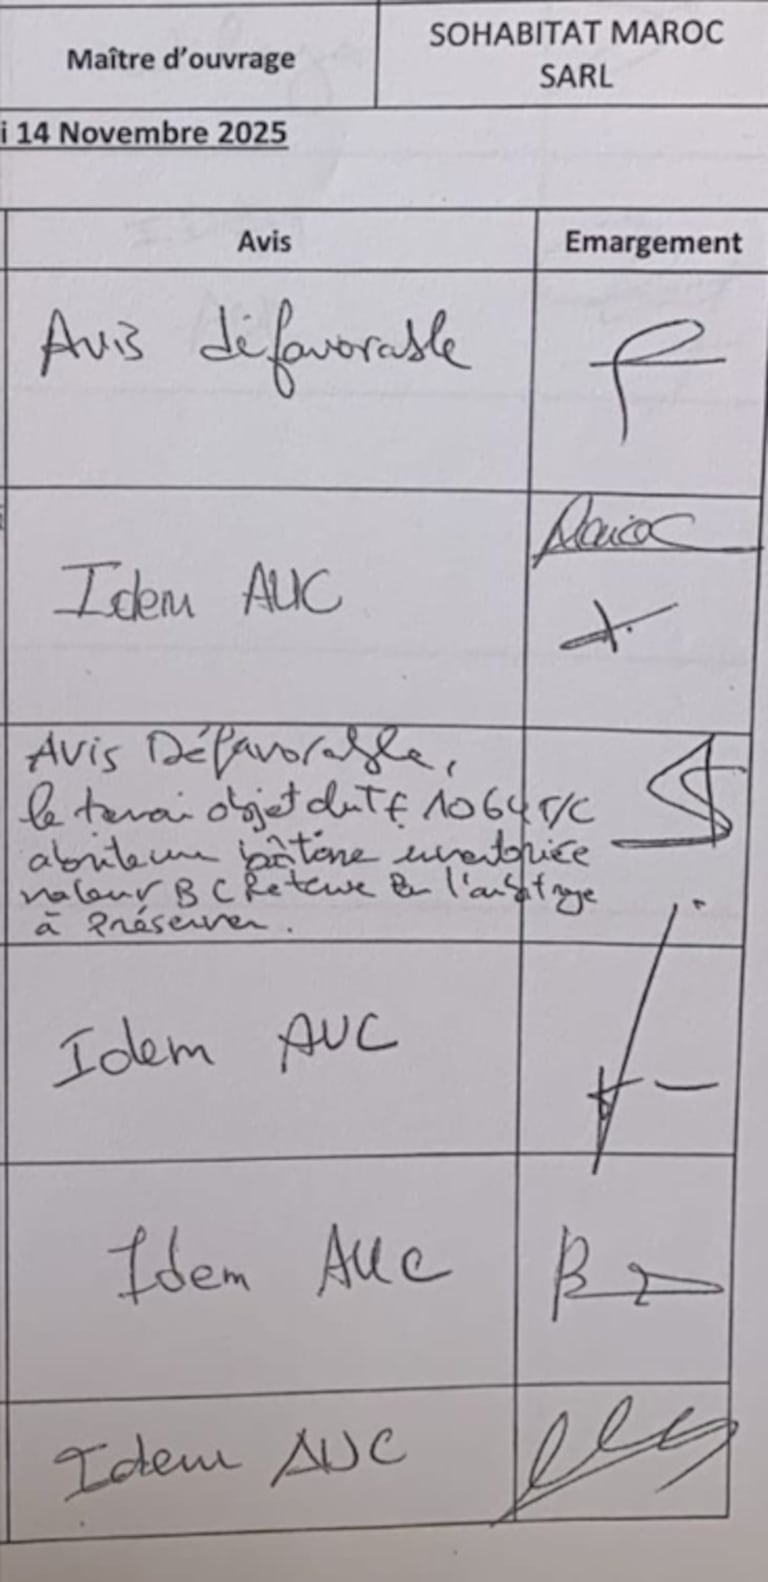 Maître d'ouvrage
SOHABITAT MAROC
SARL
i 14 Novembre 2025
Avis
Emargement
Avis défavorable
Idem AUC
Avis Défavorable,
le terrain objet du TF 1064 /C
abrite une bâtisse inventoriée
valeur B C Retenue en l'arbitrage
à Préserver.
Idem AUC
Idem AUC
Idem AUC